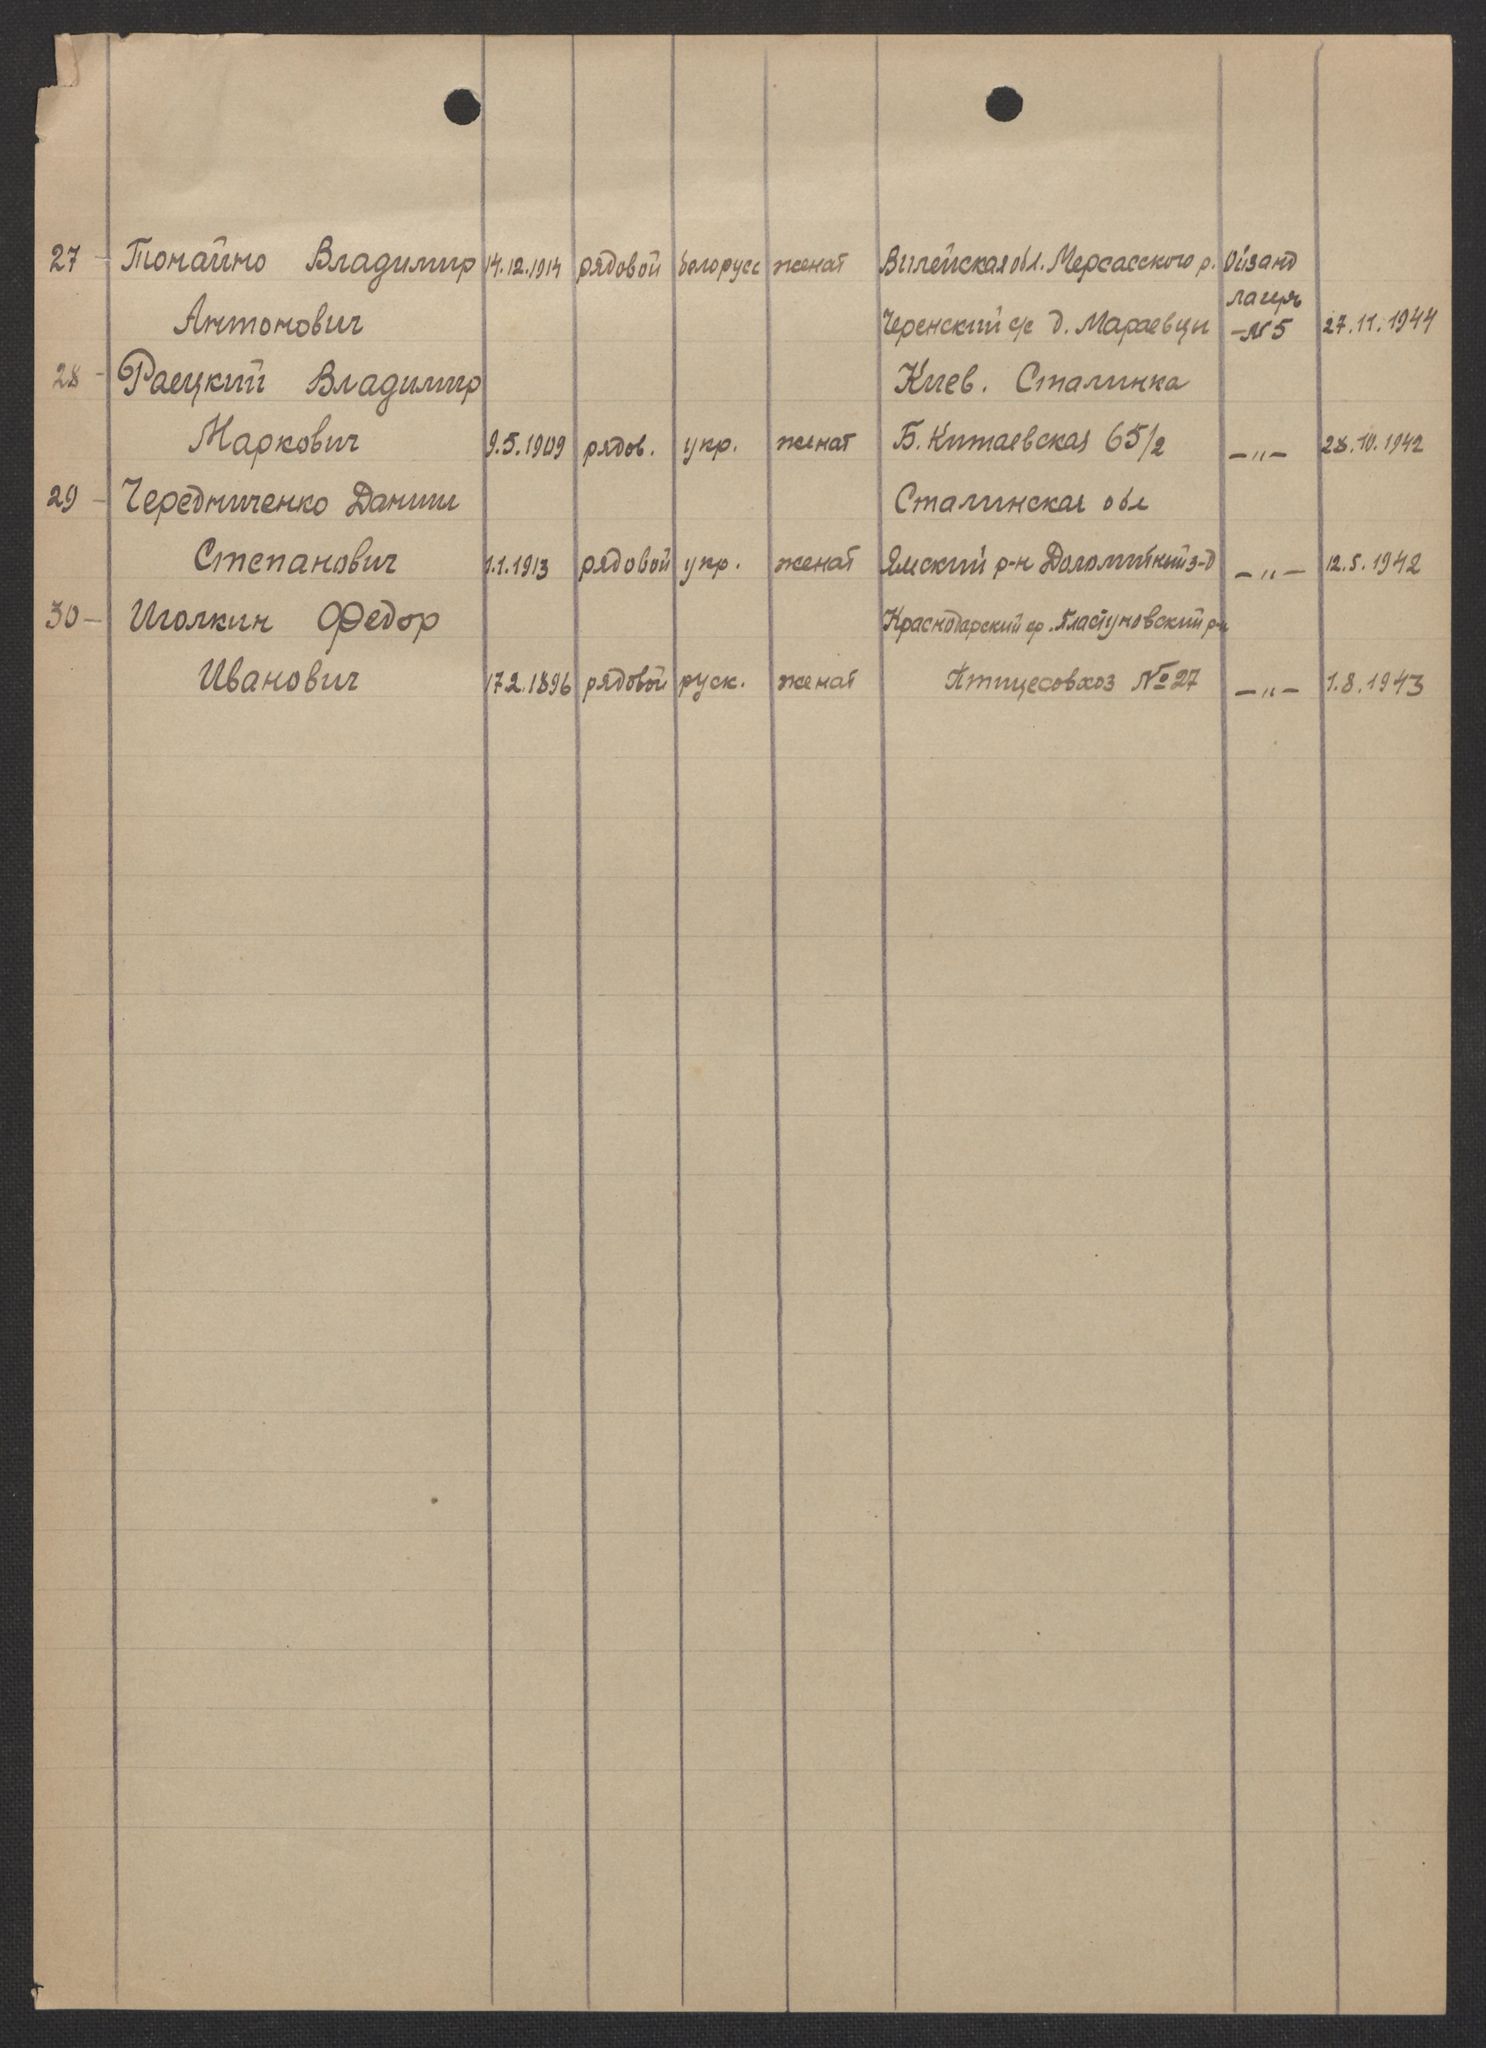 27 - Тонайно Владимир 14.12.1914 рядовой белорусс женат Вилейская обл. Мерсасского р. Ойзанд
лагерь
Антонович Черенский с/с д. Мараевцы -№5 27.11.1944
28 - Раецкий Владимир Киев. Сталинка
Маркович 9.5.1909 рядов. укр. женат Б. Китаевская 65/2 -"- 28.10.1942
29 - Чередниченко Даниил Сталинская обл
Степанович 1.1.1913 рядовой укр. женат Ямский р-н Доломитний з-д -"- 12.5.1942
30 - Иголкин Федор Краснодарский кр. Пластуновский р-н
Иванович 17.2.1896 рядовой руск. женат Птицесовхоз №27 -"- 1.8.1943